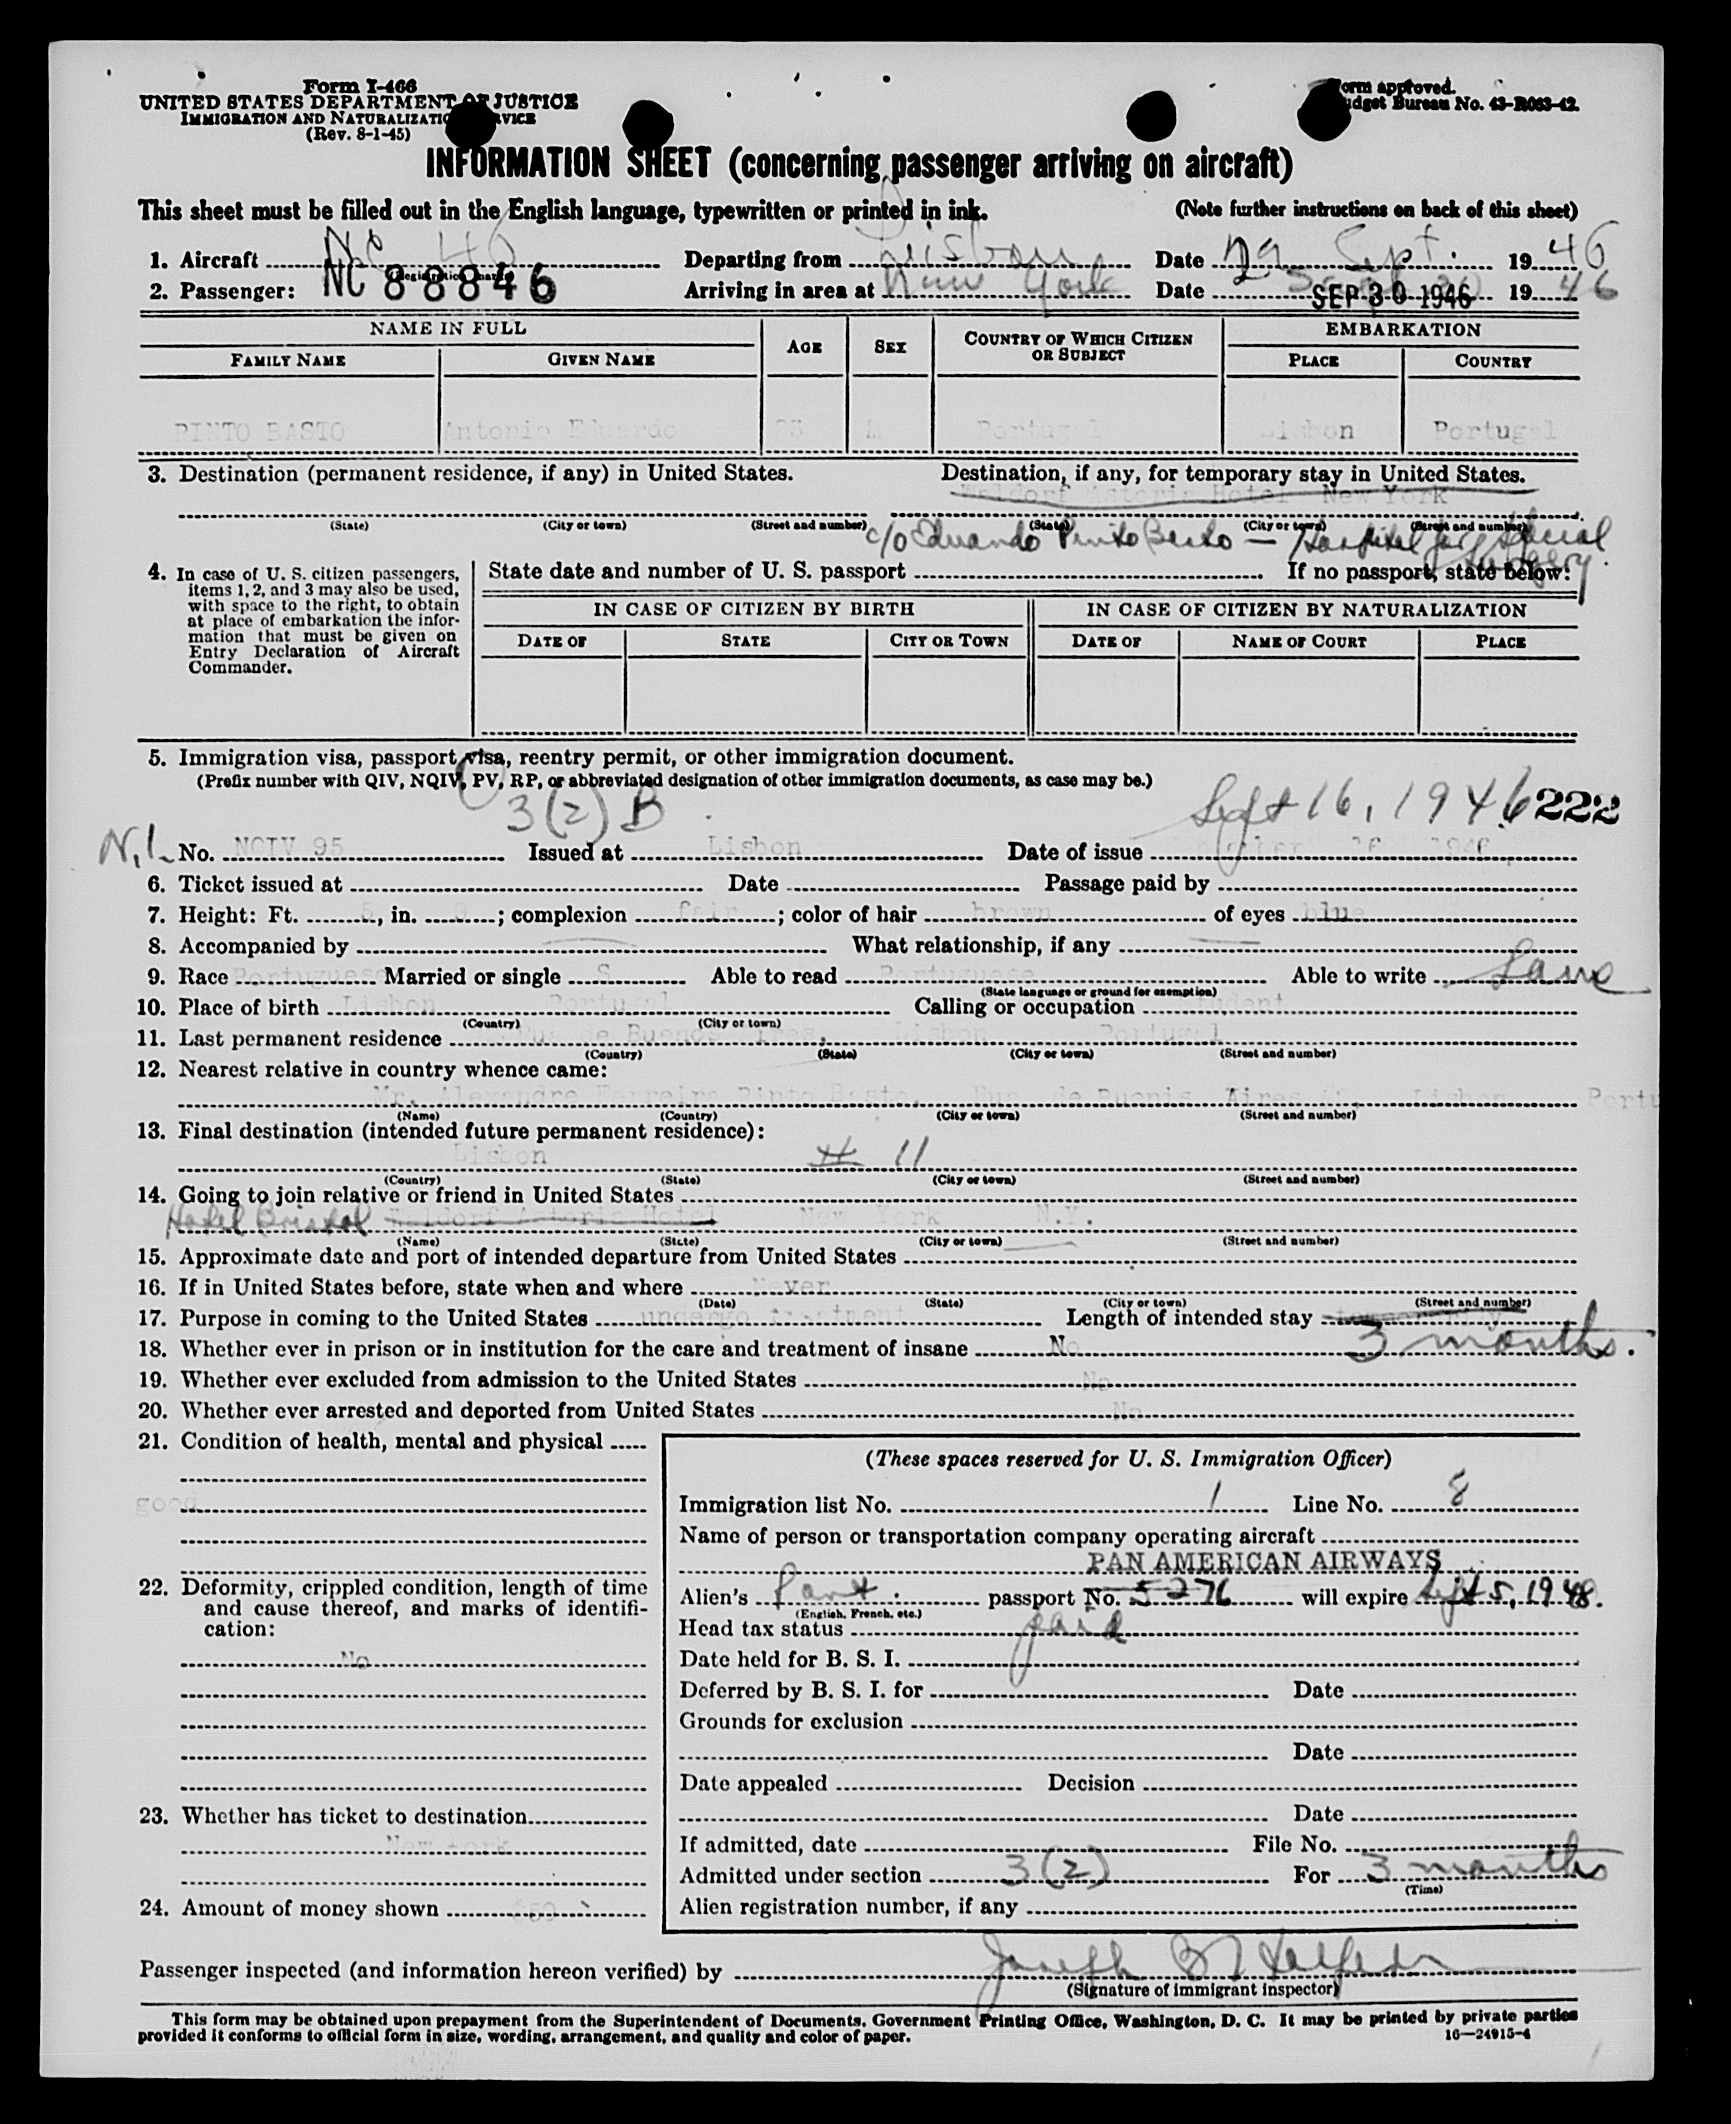 Form I-466
UNITED STATES DEPARTMENT OF JUSTICE
IMMIGRATION AND NATURALIZATION SERVICE
(Rev. 8-1-45)
Form approved.
Budget Bureau No. 43-R063-42.
INFORMATION SHEET (concerning passenger arriving on aircraft)
This sheet must be filled out in the English language, typewritten or printed in ink. (Note further instructions on back of this sheet)
1. Aircraft NC 46 Departing from Lisbon Date 29 Sept. 1946
(Registration marks)
2. Passenger: NC 88846 Arriving in area at New York Date SEP 30 1946 1946
NAME IN FULL AGE SEX COUNTRY OF WHICH CITIZEN OR SUBJECT EMBARKATION
FAMILY NAME GIVEN NAME PLACE COUNTRY
PINTO BASTO Antonio Eduardo 23 M Portugal Lisbon Portugal
3. Destination (permanent residence, if any) in United States. Destination, if any, for temporary stay in United States.
Waldorf Astoria Hotel New York
(State) (City or town) (Street and number) (State) (City or town) (Street and number)
c/o Eduardo Pinto Basto — Hospital for Special Surgery.
4. In case of U. S. citizen passengers, items 1, 2, and 3 may also be used, with space to the right, to obtain at place of embarkation the information that must be given on Entry Declaration of Aircraft Commander.
State date and number of U. S. passport If no passport, state below:
IN CASE OF CITIZEN BY BIRTH IN CASE OF CITIZEN BY NATURALIZATION
DATE OF STATE CITY OR TOWN DATE OF NAME OF COURT PLACE
5. Immigration visa, passport visa, reentry permit, or other immigration document.
(Prefix number with QIV, NQIV, PV, RP, or abbreviated designation of other immigration documents, as case may be.)
3(2) B Sept 16, 1946 222
N.I. No. NQIV 95 Issued at Lisbon Date of issue September 16 1946
6. Ticket issued at Date Passage paid by
7. Height: Ft. 5, in. 9; complexion fair; color of hair brown of eyes blue
8. Accompanied by — What relationship, if any —
9. Race Portuguese Married or single S Able to read Portuguese Able to write Same
(State language or ground for exemption)
10. Place of birth Lisbon Portugal Calling or occupation student
(Country) (City or town)
11. Last permanent residence Rua de Buenos Aires, Lisbon Portugal
(Country) (State) (City or town) (Street and number)
12. Nearest relative in country whence came:
Mr. Alexandre Ferreira Pinto Basto, Rua de Buenos Aires Lisbon Portu
(Name) (Country) (City or town) (Street and number)
13. Final destination (intended future permanent residence):
Lisbon # 11
(Country) (State) (City or town) (Street and number)
14. Going to join relative or friend in United States
Hotel Bristol Waldorf Astoria Hotel New York N.Y.
(Name) (State) (City or town) (Street and number)
15. Approximate date and port of intended departure from United States —
16. If in United States before, state when and where Never
(Date) (State) (City or town) (Street and number)
17. Purpose in coming to the United States undergo treatment Length of intended stay
3 months.
18. Whether ever in prison or in institution for the care and treatment of insane No
19. Whether ever excluded from admission to the United States No
20. Whether ever arrested and deported from United States No
21. Condition of health, mental and physical
good
22. Deformity, crippled condition, length of time and cause thereof, and marks of identification:
No
23. Whether has ticket to destination
New York
24. Amount of money shown
(These spaces reserved for U. S. Immigration Officer)
Immigration list No. 1 Line No. 8
Name of person or transportation company operating aircraft
PAN AMERICAN AIRWAYS
Alien's Port. passport No. 5276 will expire Sept 5, 1948.
(English, French, etc.)
Head tax status paid
Date held for B. S. I.
Deferred by B. S. I. for Date
Grounds for exclusion
Date
Date appealed Decision
Date
If admitted, date File No.
Admitted under section 3(2) For 3 months
(Time)
Alien registration number, if any
Passenger inspected (and information hereon verified) by Joseph
(Signature of immigrant inspector)
This form may be obtained upon prepayment from the Superintendent of Documents, Government Printing Office, Washington, D. C. It may be printed by private parties
provided it conforms to official form in size, wording, arrangement, and quality and color of paper. 16—24915-4